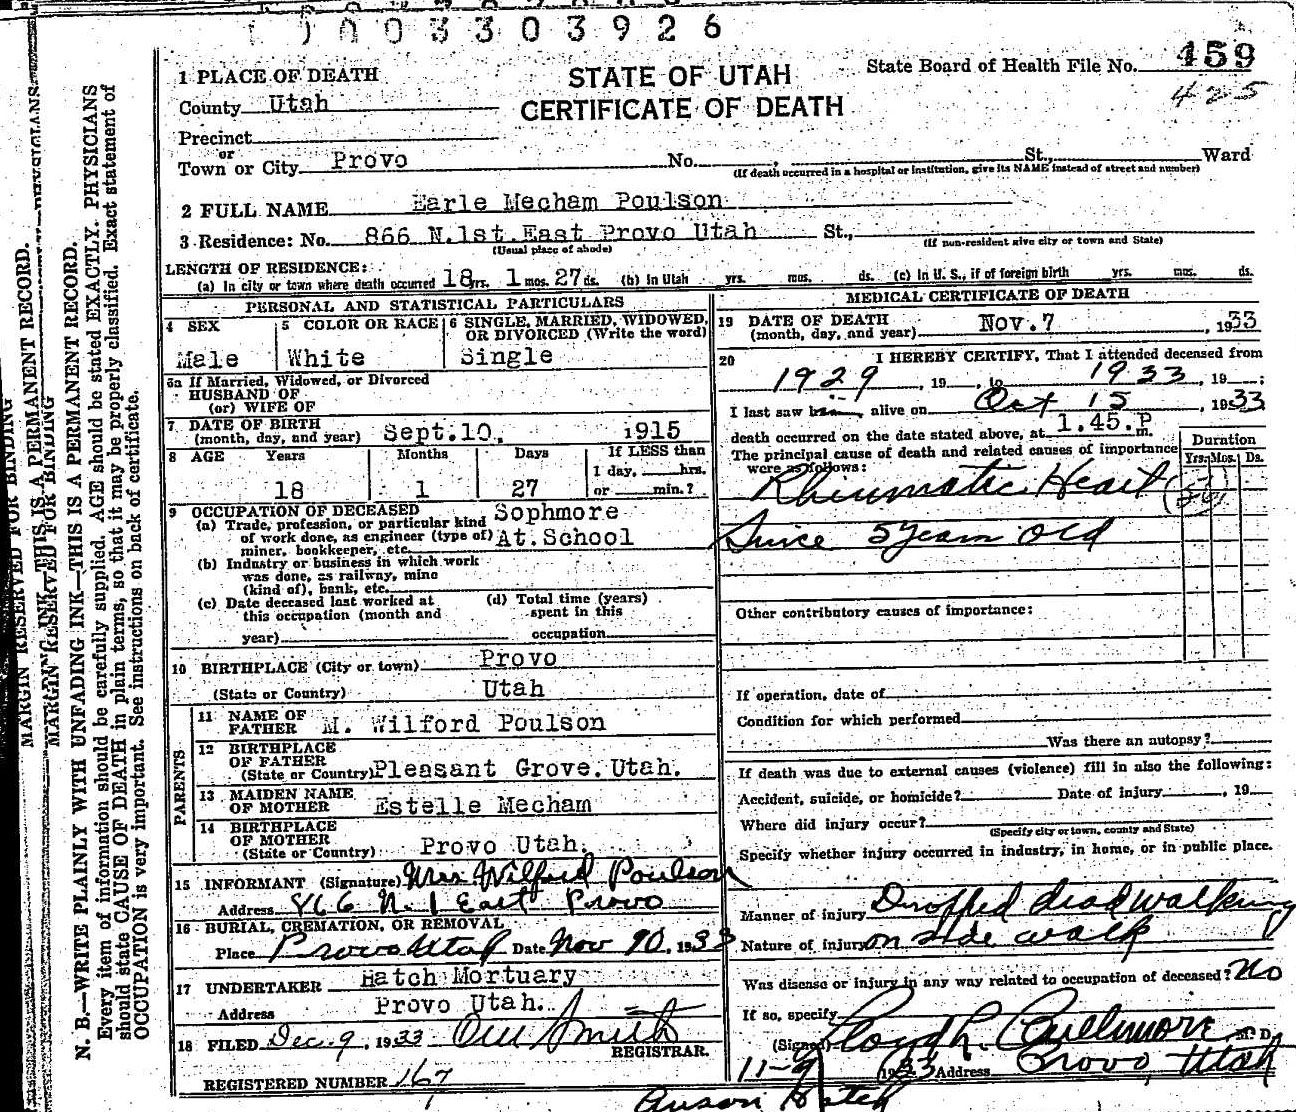 0 0 3 3 0 3 9 2 6
STATE OF UTAH
CERTIFICATE OF DEATH
State Board of Health File No. 159
425
1 PLACE OF DEATH
County Utah
Precinct
or
Town or City Provo No. , St., Ward
(If death occurred in a hospital or institution, give its NAME instead of street and number)
2 FULL NAME Earle Mecham Poulson
3 Residence: No. 866 N.1st.East Provo Utah St.,
(Usual place of abode) (If non-resident give city or town and State)
LENGTH OF RESIDENCE:
(a) In city or town where death occurred 18 yrs. 1 mos. 27 ds. (b) In Utah yrs. mos. ds. (c) In U. S., if of foreign birth yrs. mos. ds.
PERSONAL AND STATISTICAL PARTICULARS
4 SEX
Male
5 COLOR OR RACE
White
6 SINGLE, MARRIED, WIDOWED,
OR DIVORCED (Write the word)
Single
6a If Married, Widowed, or Divorced
HUSBAND OF
(or) WIFE OF
7 DATE OF BIRTH
(month, day, and year) Sept.10, 1915
8 AGE Years Months Days If LESS than
1 day, hrs.
18 1 27 or min.?
9 OCCUPATION OF DECEASED Sophmore
(a) Trade, profession, or particular kind
of work done, as engineer (type of) At.School
miner, bookkeeper, etc.
(b) Industry or business in which work
was done, as railway, mine
(kind of), bank, etc.
(c) Date deceased last worked at
this occupation (month and
year)
(d) Total time (years)
spent in this
occupation
10 BIRTHPLACE (City or town) Provo
(State or Country) Utah
PARENTS
11 NAME OF
FATHER M. Wilford Poulson
12 BIRTHPLACE
OF FATHER
(State or Country) Pleasant Grove. Utah.
13 MAIDEN NAME
OF MOTHER Estelle Mecham
14 BIRTHPLACE
OF MOTHER
(State or Country) Provo Utah.
15 INFORMANT (Signature) Mrs. Wilford Poulson
Address 866 N. 1 East Provo
16 BURIAL, CREMATION, OR REMOVAL
Place Provo Utah Date Nov 10, 1933
17 UNDERTAKER Hatch Mortuary
Address Provo Utah.
18 FILED Dec. 9, 1933 Smith
REGISTRAR.
REGISTERED NUMBER 167
MEDICAL CERTIFICATE OF DEATH
19 DATE OF DEATH
(month, day, and year) Nov.7 , 1933
20 I HEREBY CERTIFY, That I attended deceased from
1929 , 19 , to 1933 , 19 ;
I last saw him alive on Oct 15 , 1933
death occurred on the date stated above, at 1.45.P m.
The principal cause of death and related causes of importance
were as follows:
Duration
Yrs. Mos. Ds.
Rheumatic Heart
Since 5 years old
Other contributory causes of importance:
If operation, date of
Condition for which performed
Was there an autopsy?
If death was due to external causes (violence) fill in also the following:
Accident, suicide, or homicide? Date of injury , 19
Where did injury occur?
(Specify city or town, county and State)
Specify whether injury occurred in industry, in home, or in public place.
Manner of injury Dropped dead walking
Nature of injury on side walk
Was disease or injury in any way related to occupation of deceased? No
If so, specify
(Signed) Lloyd L. Cullimore M. D.
11-9 1933 Address Provo, Utah
Anson Hatch
MARGIN RESERVED FOR BINDING
N. B.—WRITE PLAINLY WITH UNFADING INK—THIS IS A PERMANENT RECORD.
Every item of information should be carefully supplied. AGE should be stated EXACTLY. PHYSICIANS
should state CAUSE OF DEATH in plain terms, so that it may be properly classified. Exact statement of
OCCUPATION is very important. See instructions on back of certificate.